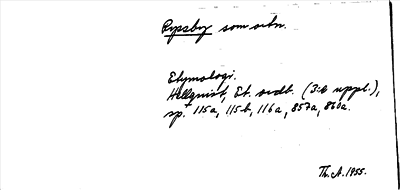 Rypsby som ortn.
Etymologi.
Hellquist, Et. ordb. (3:e uppl.),
sp. 115a, 115b, 116a, 857a, 860a.
Th. A. 1955.